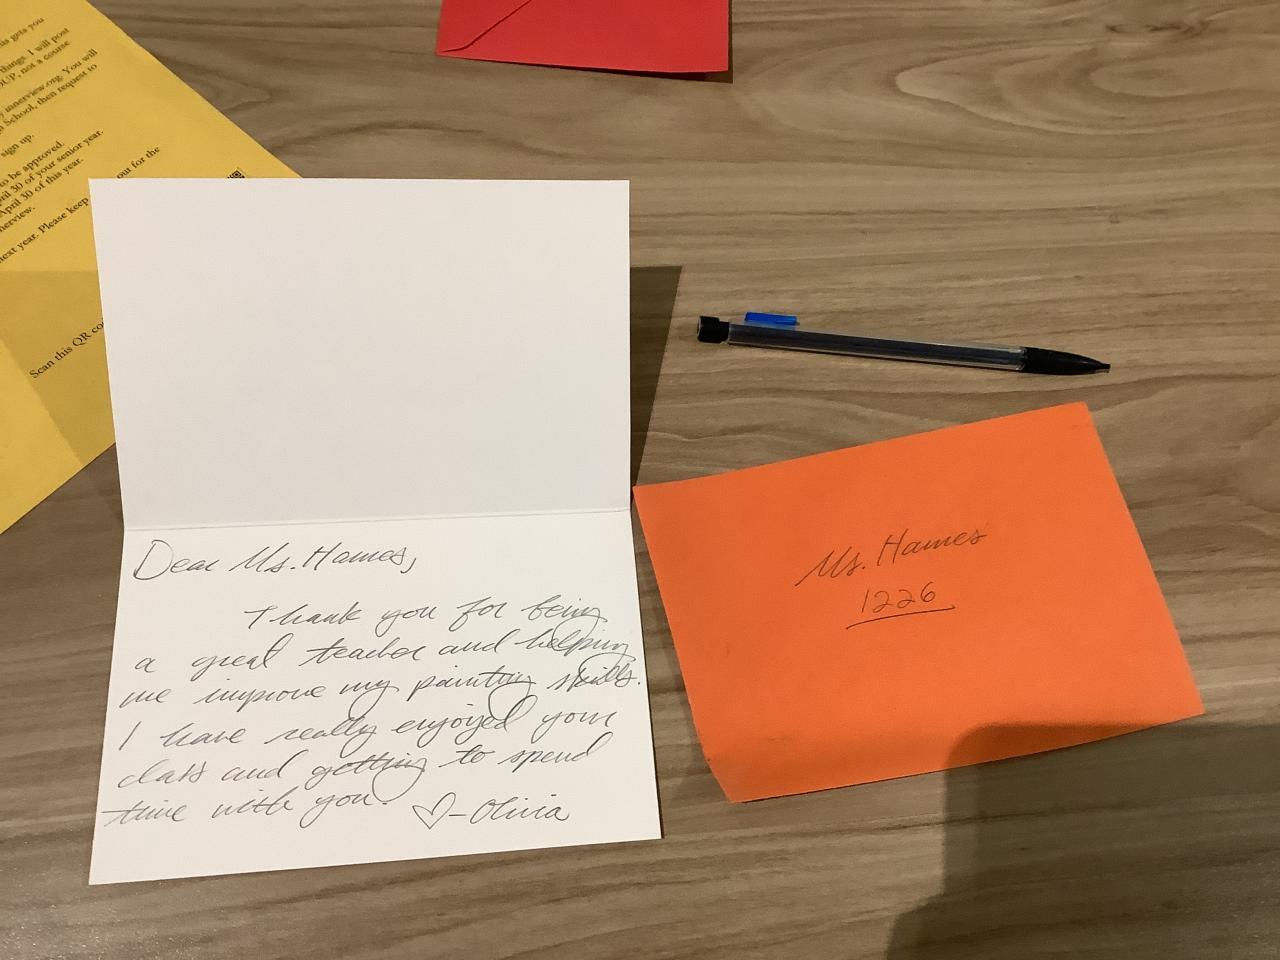 is gets you
things. I will post
OUP, not a course
innerview.org. You will
School, then request to
sign up.
to be approved.
April 30 of your senior year.
April 30 of this year.
nerview.
next year. Please keep out for the
Scan this QR co
Dear Ms. Hames,
Thank you for being
a great teacher and helping
me improve my painting skills.
I have really enjoyed your
class and getting to spend
time with you.
♡-Olivia
Ms. Hames
1226